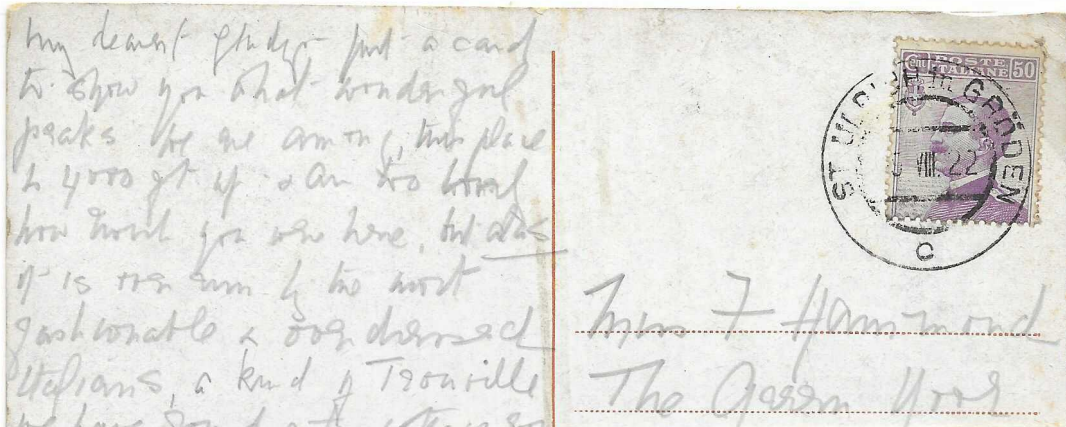 My dearest Gladys just a card
to show you what wonderful
peaks we are among, this place
is 4000 ft up & an
how I wish you were here, but alas
it is over run by the most
fashionable & overdressed
Italians, a kind of Trouville
we have found
POSTE
ITALIANE 50
ST. ULRICH in GRÖDEN
VIII.22
C
Mrs F Hammond
The Green